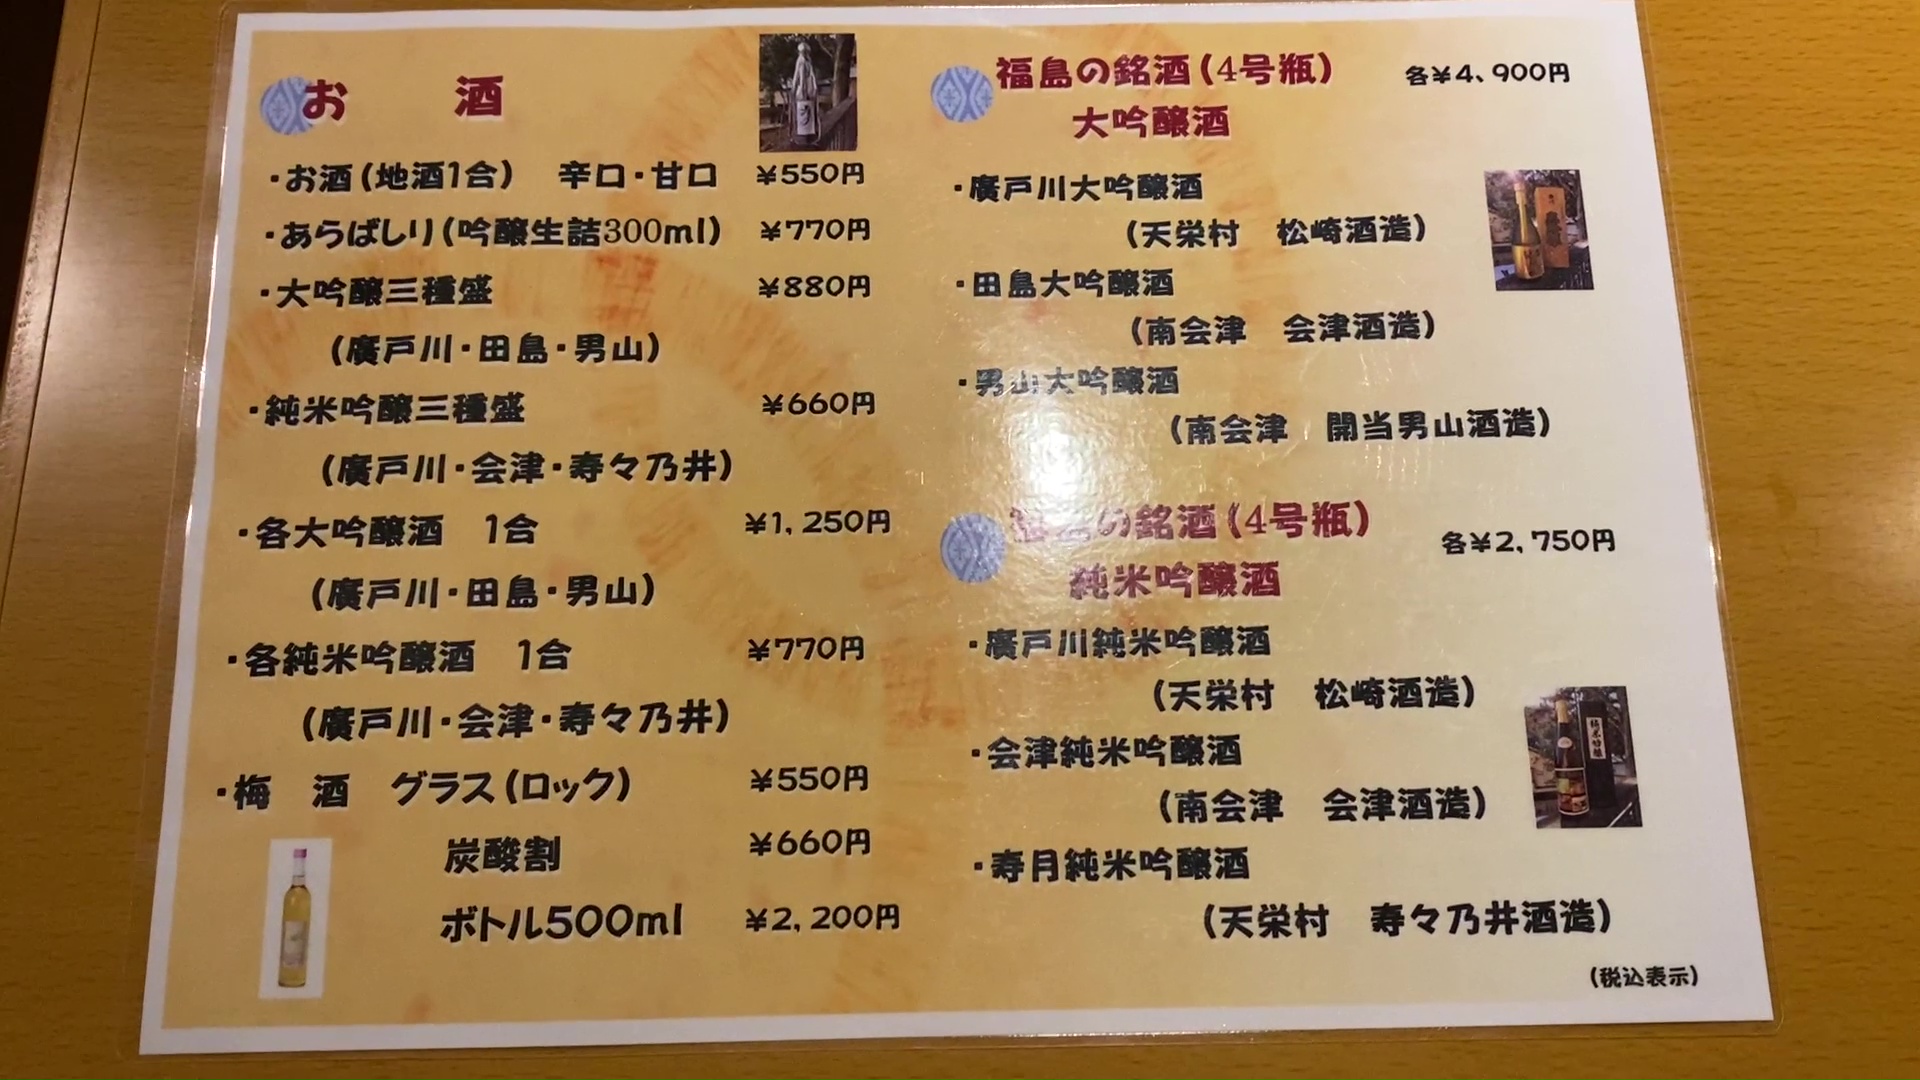 お 酒
・お酒(地酒1合) 辛口・甘口 ¥550円
・あらばしり(吟醸生詰300ml) ¥770円
・大吟醸三種盛 ¥880円
(廣戸川・田島・男山)
・純米吟醸三種盛 ¥660円
(廣戸川・会津・寿々乃井)
・各大吟醸酒 1合 ¥1,250円
(廣戸川・田島・男山)
・各純米吟醸酒 1合 ¥770円
(廣戸川・会津・寿々乃井)
・梅 酒 グラス(ロック) ¥550円
炭酸割 ¥660円
ボトル500ml ¥2,200円
福島の銘酒(4号瓶) 各¥4、900円
大吟醸酒
・廣戸川大吟醸酒
(天栄村 松崎酒造)
・田島大吟醸酒
(南会津 会津酒造)
・男山大吟醸酒
(南会津 開当男山酒造)
福島の銘酒(4号瓶) 各¥2,750円
純米吟醸酒
・廣戸川純米吟醸酒
(天栄村 松崎酒造)
・会津純米吟醸酒
(南会津 会津酒造)
純米吟醸
・寿月純米吟醸酒
(天栄村 寿々乃井酒造)
(税込表示)